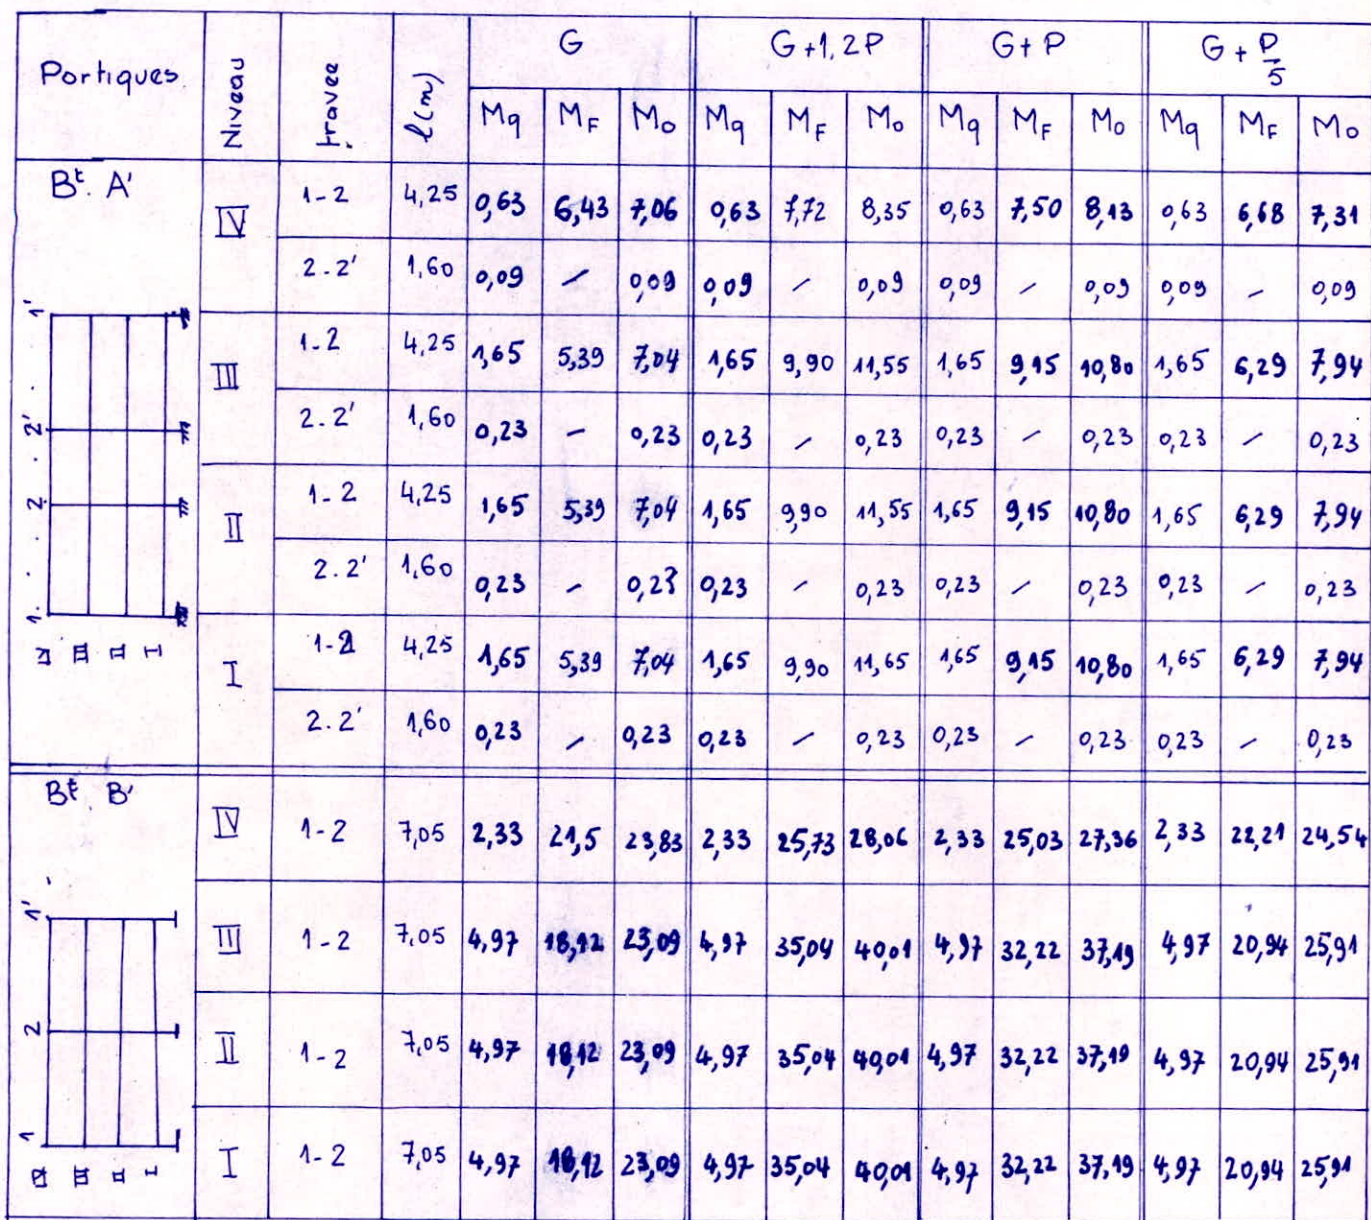 Portiques Niveau travee l(m) G G+1,2P G+P G+P/5
Mq MF Mo Mq MF Mo Mq MF Mo Mq MF Mo
Bt. A'
IV 1-2 4,25 0,63 6,43 7,06 0,63 7,72 8,35 0,63 7,50 8,13 0,63 6,68 7,31
2-2' 1,60 0,09 - 0,09 0,09 - 0,09 0,09 - 0,09 0,09 - 0,09
III 1-2 4,25 1,65 5,39 7,04 1,65 9,90 11,55 1,65 9,15 10,80 1,65 6,29 7,94
2-2' 1,60 0,23 - 0,23 0,23 - 0,23 0,23 - 0,23 0,23 - 0,23
II 1-2 4,25 1,65 5,39 7,04 1,65 9,90 11,55 1,65 9,15 10,80 1,65 6,29 7,94
2.2' 1,60 0,23 - 0,23 0,23 - 0,23 0,23 - 0,23 0,23 - 0,23
I 1-2 4,25 1,65 5,39 7,04 1,65 9,90 11,65 1,65 9,15 10,80 1,65 6,29 7,94
2.2' 1,60 0,23 - 0,23 0,23 - 0,23 0,23 - 0,23 0,23 - 0,23
1' 2' 2 1
IV III II I
Bt B'
IV 1-2 7,05 2,33 21,5 23,83 2,33 25,73 28,06 2,33 25,03 27,36 2,33 22,21 24,54
III 1-2 7,05 4,97 18,12 23,09 4,97 35,04 40,01 4,97 32,22 37,19 4,97 20,94 25,91
II 1-2 7,05 4,97 18,12 23,09 4,97 35,04 40,01 4,97 32,22 37,19 4,97 20,94 25,91
I 1-2 7,05 4,97 18,12 23,09 4,97 35,04 40,01 4,97 32,22 37,19 4,97 20,94 25,91
1' 2 1
IV III II I